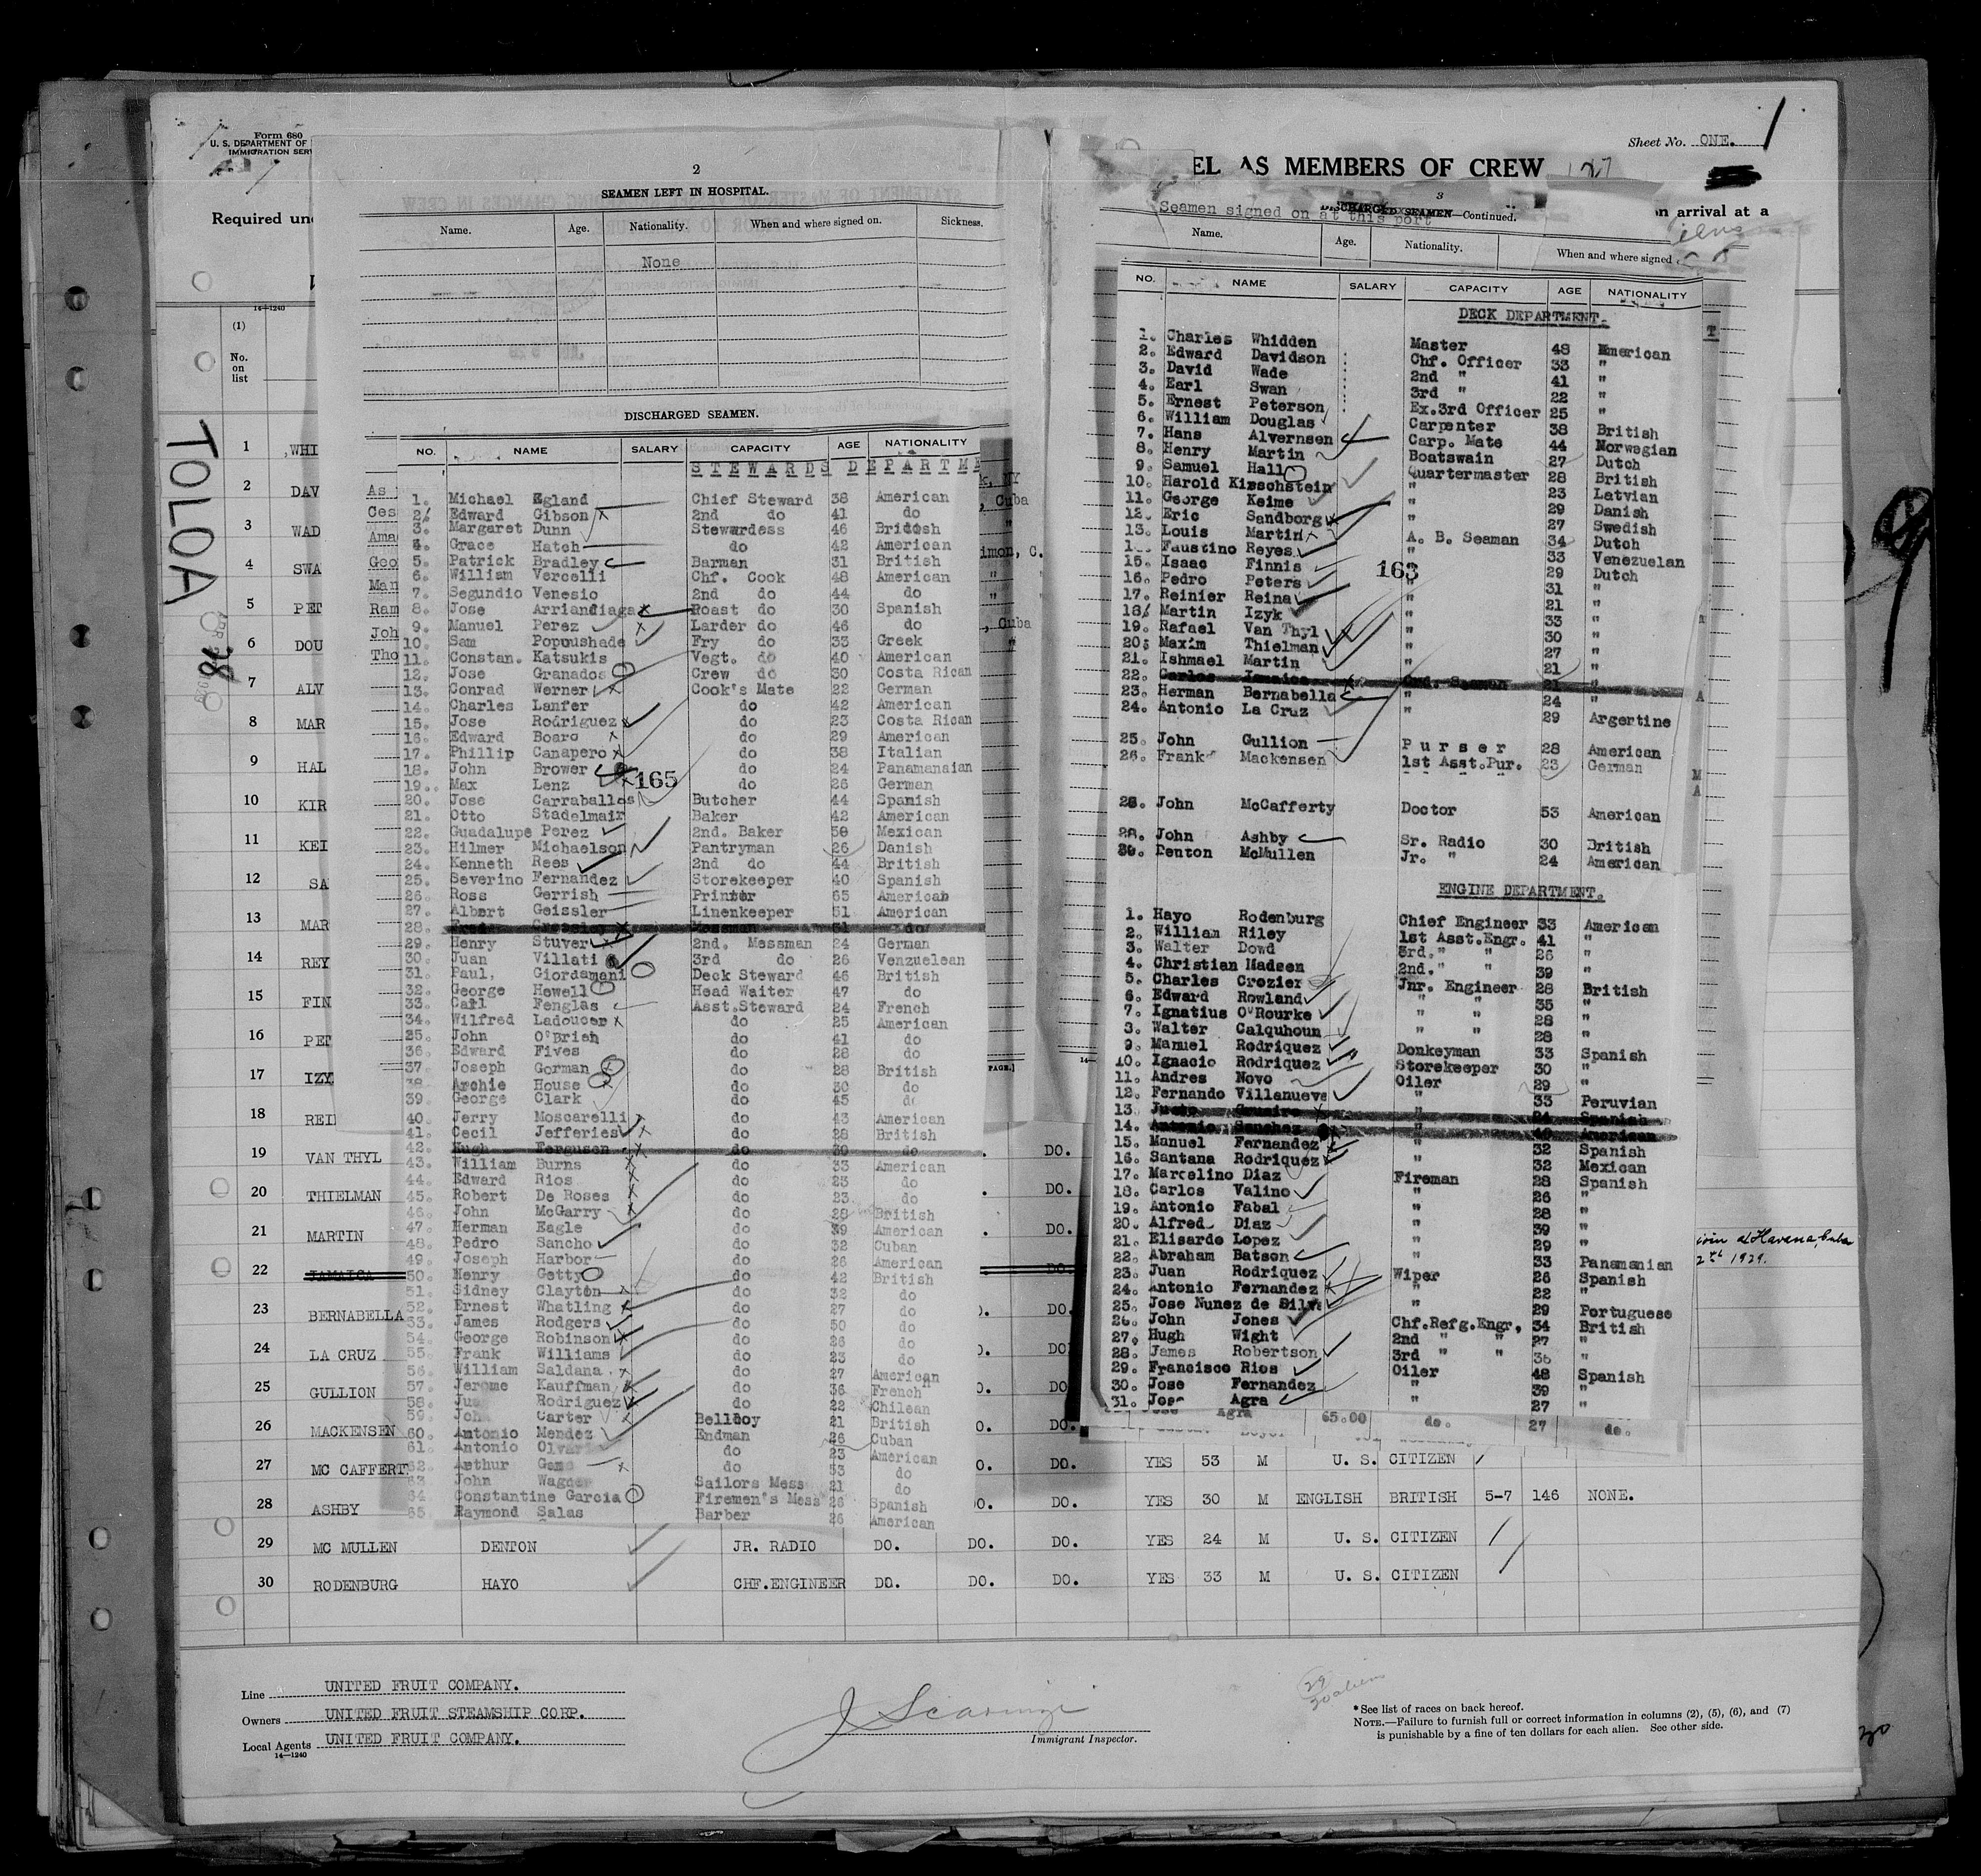 Form 680
U. S. DEPARTMENT OF
IMMIGRATION SERV
Required und
14—1240
(1)
No. on list
TOLOA
1 WHI
2 DAV
3 WAD
4 SWA
5 PET
6 DOU
7 ALV
8 MAR
9 HAL
10 KIR
11 KEI
12 SA
13 MAR
14 REY
15 FIN
16 PET
17 IZY
18 REI
19 VAN THYL DO.
20 THIELMAN DO.
21 MARTIN DO.
22 JAMAICA DO.
23 BERNABELLA DO.
24 LA CRUZ DO
25 GULLION DO
26 MACKENSEN DO.
27 MC CAFFERT DO. YES 53 M U. S. CITIZEN
28 ASHBY DO. YES 30 M ENGLISH BRITISH 5-7 146 NONE.
29 MC MULLEN DENTON JR. RADIO DO. DO. DO. YES 24 M U. S. CITIZEN
30 RODENBURG HAYO CHF.ENGINEER DO. DO. DO. YES 33 M U. S. CITIZEN
Line UNITED FRUIT COMPANY.
Owners UNITED FRUIT STEAMSHIP CORP.
Local Agents UNITED FRUIT COMPANY.
14—1240
J Scaringi
Immigrant Inspector.
*See list of races on back hereof.
NOTE.—Failure to furnish full or correct information in columns (2), (5), (6), and (7)
is punishable by a fine of ten dollars for each alien. See other side.
2
SEAMEN LEFT IN HOSPITAL.
Name. Age. Nationality. When and where signed on. Sickness.
None
DISCHARGED SEAMEN.
NO. NAME SALARY CAPACITY AGE NATIONALITY
STEWARDS DEPARTME
1. Michael Egland Chief Steward 38 American
2. Edward Gibson 2nd do 41 do
3. Margaret Dunn Stewardess 46 British
4. Grace Hatch do 42 American
5. Patrick Bradley Barman 31 British
6. William Vercelli Chf. Cook 48 American
7. Segundio Venesio 2nd do 44 do
8. Jose Arriandiaga Roast do 30 Spanish
9. Manuel Perez Larder do 46 do
10. Sam Popoushade Fry do 33 Greek
11. Constan. Katsukis Vegt. do 40 American
12. Jose Granados Crew do 30 Costa Rican
13. Conrad Werner Cook's Mate 22 German
14. Charles Lanfer do 42 American
15. Jose Rodriguez do 23 Costa Rican
16. Edward Boaro do 29 American
17. Phillip Canapero do 38 Italian
18. John Brower do 24 Panamanaian
19. Max Lenz do 26 German
165
20. Jose Carraballos Butcher 44 Spanish
21. Otto Stadelmair Baker 42 American
22. Guadalupe Perez 2nd. Baker 50 Mexican
23. Hilmer Michaelson Pantryman 26 Danish
24. Kenneth Rees 2nd do 44 British
25. Severino Fernandez Storekeeper 40 Spanish
26. Ross Gerrish Printer 65 American
27. Albert Geissler Linenkeeper 51 American
28. Messman 51 do
29. Henry Stuver 2nd. Messman 24 German
30. Juan Villati 3rd do 26 Venzuelean
31. Paul, Giordamani Deck Steward 46 British
32. George Hewell Head Waiter 47 do
33. Carl Fenglas Asst.Steward 24 French
34. Wilfred Ladoucer do 25 American
35. John O'Brien do 41 do
36. Edward Fives do 28 do
37. Joseph Gorman do 28 British
38. Archie House do 30 do
39. George Clark do 45 do
40. Jerry Moscarelli do 43 American
41. Cecil Jefferies do 28 British
42. Hugh Ferguson do 30 do
43. William Burns do 33 American
44. Edward Rios do 23 do
45. Robert De Roses do 23 do
46. John McGarry do 28 British
47. Herman Eagle do 39 American
48. Pedro Sancho do 32 Cuban
49. Joseph Harbor do 26 American
50. Henry Getty do 42 British
51. Sidney Clayton do 32 do
52. Ernest Whatling do 27 do
53. James Rodgers do 50 do
54. George Robinson do 26 do
55. Frank Williams do 23 do
56. William Saldana do 27 American
57. Jerome Kauffman do 36 French
58. Rodriguez do 22 Chilean
59. John Carter Bellboy 21 British
60. Antonio Mendez Endman 26 Cuban
61. Antonio do 23 American
62. Arthur do 53 do
63. John Wagner Sailors Mess 21 do
64 Constantine Garcia Firemen's Mess 26 Spanish
65. Raymond Salas Barber 26 American
Sheet No. ONE. 1
EL AS MEMBERS OF CREW 127
3
DISCHARGED SEAMEN—Continued.
Seamen signed on at this port
n arrival at a
Name. Age. Nationality. When and where signed
NO. NAME SALARY CAPACITY AGE NATIONALITY
DECK DEPARTMENT.
1. Charles Whidden Master 48 American
2. Edward Davidson Chf. Officer 33 "
3. David Wade 2nd " 41 "
4. Earl Swan 3rd " 22 "
5. Ernest Peterson Ex.3rd Officer 25 "
6. William Douglas Carpenter 38 British
7. Hans Alvernsen Carp. Mate 44 Norwegian
8. Henry Martin Boatswain 27 Dutch
9. Samuel Hall Quartermaster 28 British
10. Harold Kirschstein " 23 Latvian
11. George Keime " 29 Danish
12. Eric Sandborg " 27 Swedish
13. Louis Martin A. B. Seaman 34 Dutch
1. Faustino Reyes " 33 Venezuelan
15. Isaac Finnis " 29 Dutch
163
16. Pedro Peters " 31 "
17. Reinier Reina " 21 "
18. Martin Izyk " 33 "
19. Rafael Van Thyl " 30 "
20. Maxim Thielman " 27 "
21. Ishmael Martin " 21 "
22. Carlos Jamaica Ord. Seaman 21 "
23. Herman Bernabella " 24 "
24. Antonio La Cruz " 29 Argentine
25. John Gullion Purser 28 American
26. Frank Mackensen 1st Asst.Pur. 23 German
28. John McCafferty Doctor 53 American
28. John Ashby Sr. Radio 30 British
30. Denton McMullen Jr. " 24 American
ENGINE DEPARTMENT.
1. Hayo Rodenburg Chief Engineer 33 American
2. William Riley 1st Asst.Engr. 41 "
3. Walter Dowd 3rd. " " 26 "
4. Christian Madsen 2nd. " " 39 "
5. Charles Crozier Jnr. Engineer 28 British
6. Edward Rowland " " 35 "
7. Ignatius O'Rourke " " 28 "
8. Walter Calquhoun " " 28 "
9. Manuel Rodriquez Donkeyman 33 Spanish
10. Ignacio Rodriquez Storekeeper 30 "
11. Andres Novo Oiler 29 "
12. Fernando Villanueve " 33 Peruvian
13. " 24 Spanish
14. Antonio Sanchez " 40 American
15. Manuel Fernandez " 32 Spanish
16. Santana Rodriquez " 32 Mexican
17. Marcelino Diaz Fireman 28 Spanish
18. Carlos Valino " 26 "
19. Antonio Fabal " 28 "
20. Alfred Diaz " 39 "
21. Elisardo Lopez " 29 "
22. Abraham Batson " 33 Panamanian
23. Juan Rodriquez Wiper 26 Spanish
24. Antonio Fernandez " 22 "
25. Jose Nunez de Silva " 29 Portuguese
26. John Jones Chf.Refg.Engr. 34 British
27. Hugh Wight 2nd " " 27 "
28. James Robertson 3rd " " 36 "
29. Francisco Rios Oiler 48 Spanish
30. Jose Fernandez " 39 "
31. Jose Agra " 27 "
Agra 65.00 do. 27 do.
at Havana, Cuba
1929.